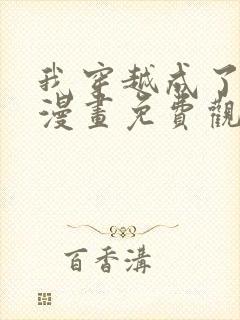 我穿越成了
漫畫免費觀
百香溝